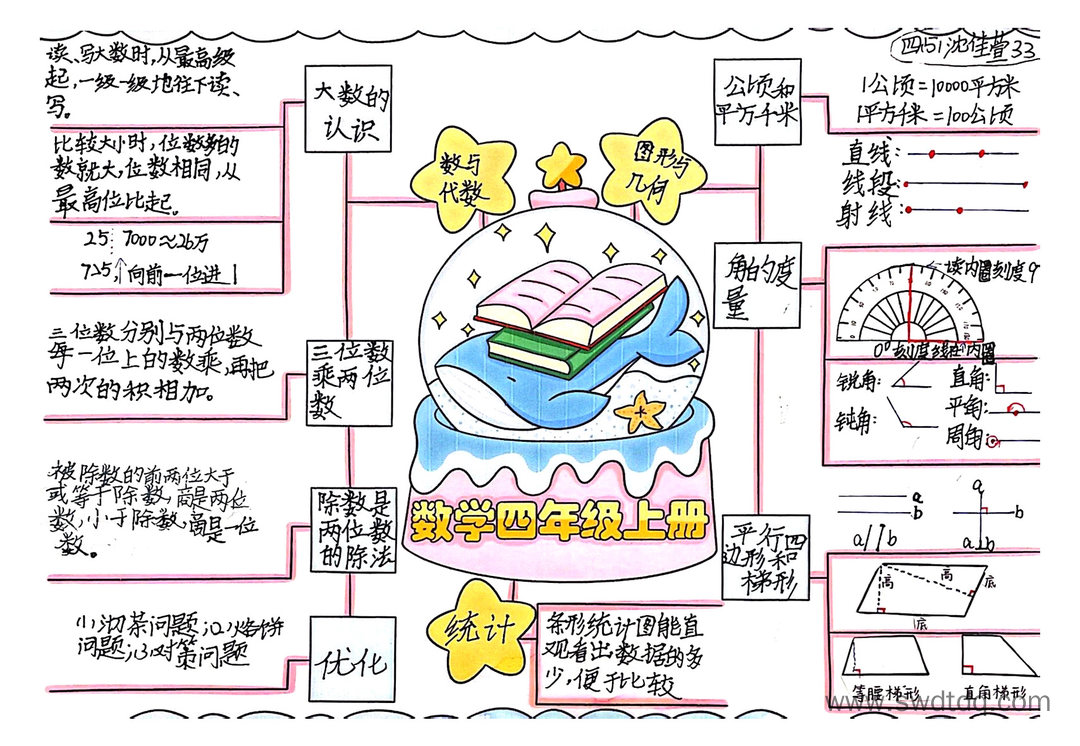 四(5) 沈佳萱 33
数学四年级上册
数与
代数
大数的
认识
读、写大数时,从最高级
起,一级一级地往下读、
写。
比较大小时,位数多的
数就大,位数相同,从
最高位比起。
25 7000≈26万
725,向前一位进1
三位数
乘两位
数
三位数分别与两位数
每一位上的数乘,再把
两次的积相加。
除数是
两位数
的除法
被除数的前两位大于
或等于除数,商是两位
数,小于除数,商是一位
数。
优化
(1)沏茶问题;(2)烙饼
问题;(3)对策问题
统计
条形统计图能直
观看出数据的多
少,便于比较
图形与
几何
公顷和
平方千米
1公顷=10000平方米
1平方千米=100公顷
直线:
线段:
射线:
角的度
量
读内圈刻度
0°刻度线在内圈
锐角:
直角:
钝角:
平角:
周角:
平行四
边形和
梯形
a
b
a//b
a
b
a⊥b
高
高
底
底
等腰梯形
直角梯形
www.swdtdq.com